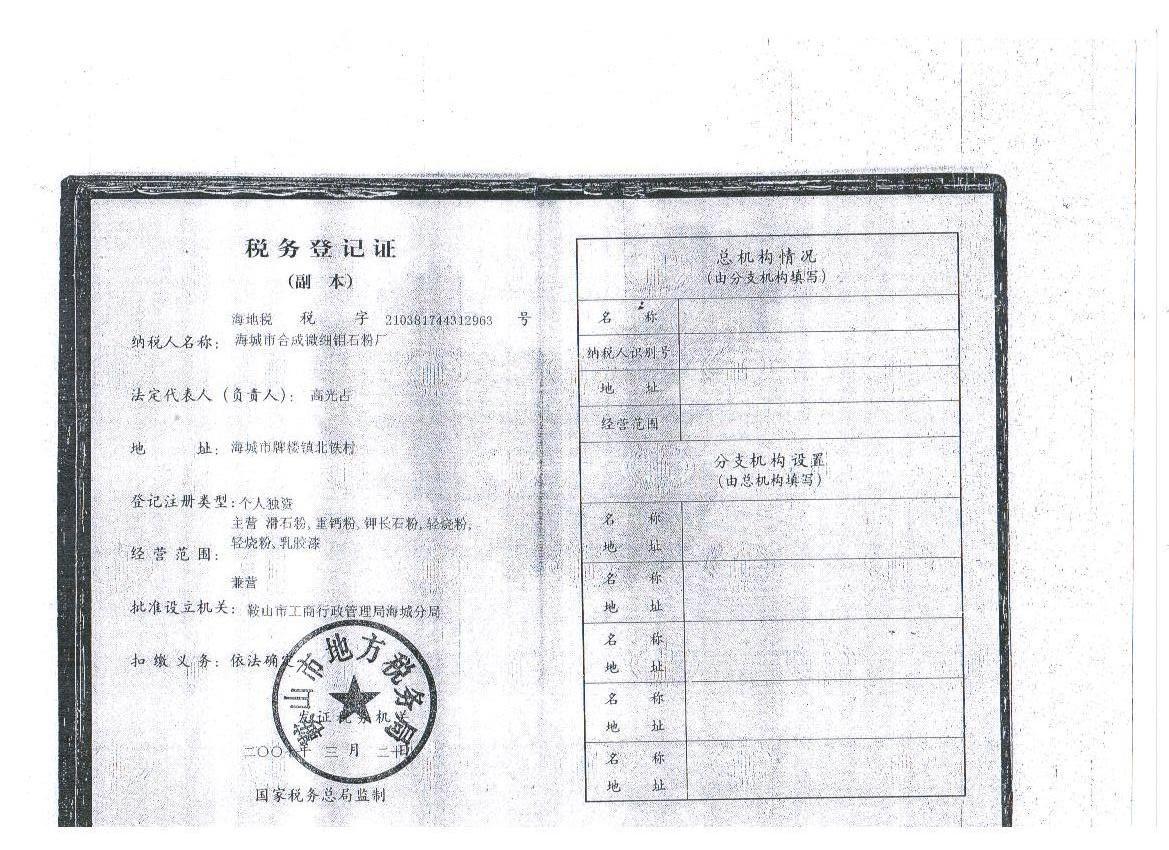 税务登记证
(副 本)
海地税 税 字 210381744312963 号
纳税人名称: 海城市合成微细钼石粉厂
法定代表人(负责人): 高光占
地 址: 海城市牌楼镇北铁村
登记注册类型: 个人独资
主营 滑石粉, 重钙粉, 钾长石粉, 轻烧粉,
经营范围: 轻烧粉, 乳胶漆
兼营
批准设立机关: 鞍山市工商行政管理局海城分局
扣缴义务: 依法确定
鞍山市地方税务局
发证税务机关
二〇〇 年 三月 二十日
国家税务总局监制
总机构情况
(由分支机构填写)
名 称
纳税人识别号
地 址
经营范围
分支机构设置
(由总机构填写)
名 称
地 址
名 称
地 址
名 称
地 址
名 称
地 址
名 称
地 址